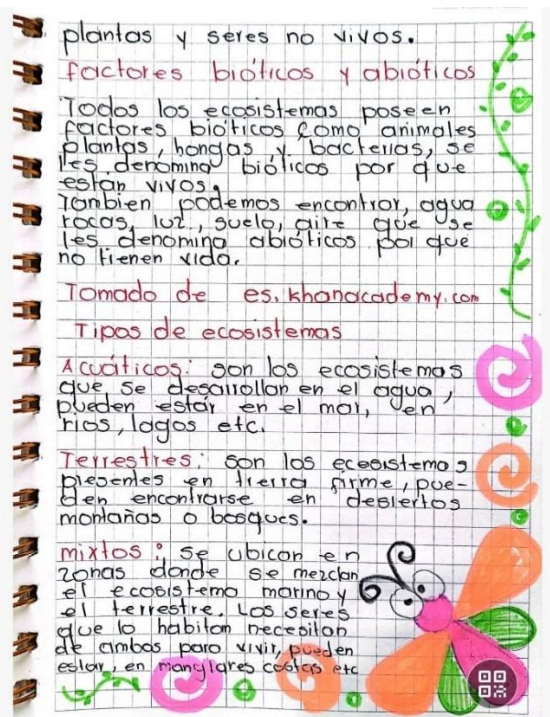 plantas y seres no vivos.
factores bióticos y abióticos
Todos los ecosistemas poseen
factores bióticos como animales
plantas, hongas y bacterias, se
les denomina bióticos por que
están vivos.
Tambien podemos encontrar, agua
rocas, luz, suelo, aire que se
les denomina abióticos por que
no tienen vida.
Tomado de es.khanacademy.com
Tipos de ecosistemas
Acuáticos: son los ecosistemas
que se desarrollan en el agua,
pueden estar en el mar, en
rios, lagos etc.
Terrestres: son los ecosistemas
presentes en tierra firme, pue-
den encontrarse en desiertos
montañas o bosques.
mixtos: se ubican en
zonas donde se mezclan
el ecosistema marino y
el terrestre. Los seres
que lo habitan necesitan
de ambos para vivir, pueden
estar, en manglares costas etc